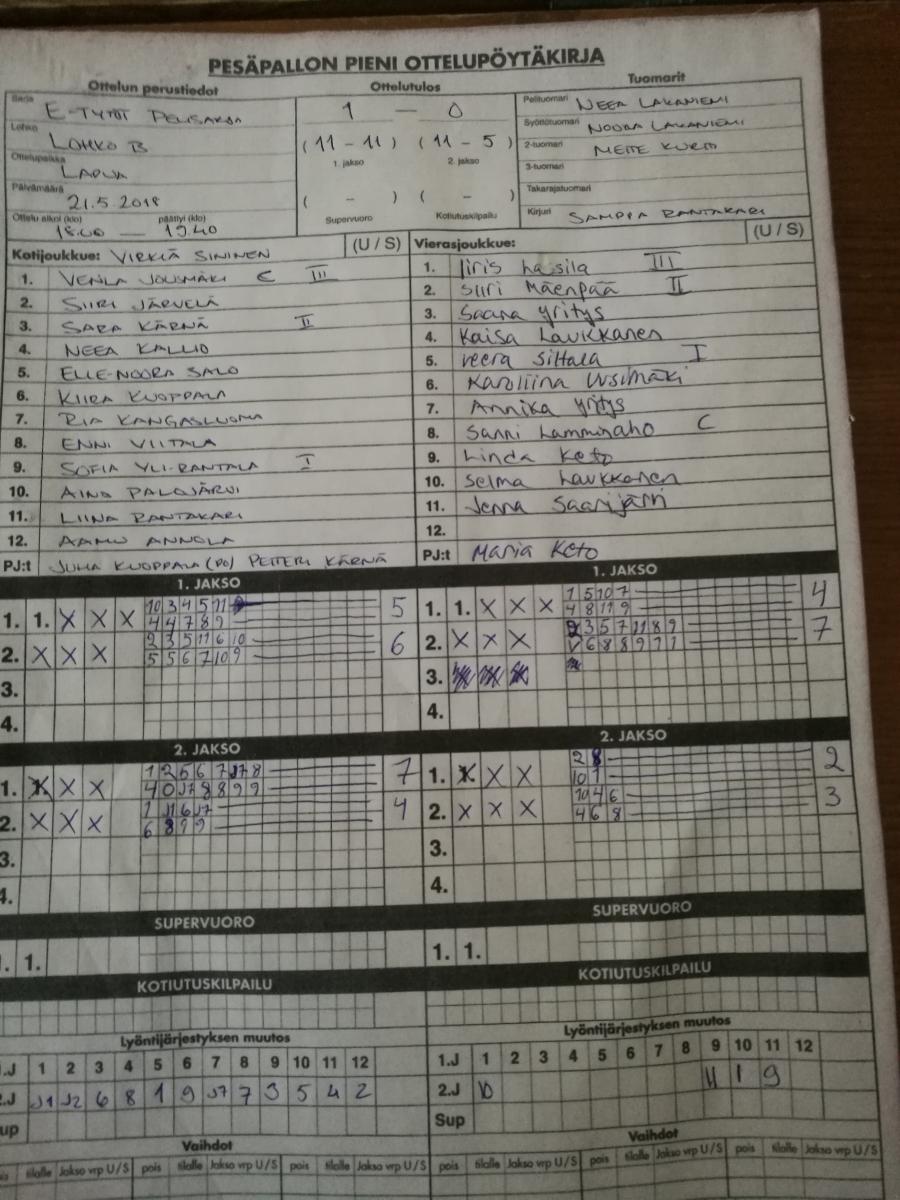 PESÄPALLON PIENI OTTELUPÖYTÄKIRJA
Ottelun perustiedot Ottelutulos Tuomarit
Sarja E-TYTÖT 1 — 0 Pelituomari NEEA LAKANIEMI
Lohko LOHKO B (11 - 11) (11 - 5) Syöttötuomari NOORA LAKANIEMI
1. jakso 2. jakso 2-tuomari
Ottelupaikka LAPUA 3-tuomari
Päivämäärä 21.5.2018 ( - ) ( - ) Takarajatuomari
Ottelu alkoi (klo) 18.00 — päättyi (klo) 19.40 Supervuoro Kotiutuskilpailu Kirjuri SAMPPA RANTAKARI
Kotijoukkue: VIRKIÄ SININEN (U / S) Vierasjoukkue: (U / S)
1. VENLA JOUSMÄKI C III 1. Iiris Lassila III
2. SIIRI JÄRVELÄ 2. Siiri Mäenpää II
3. SARA KÄRNÄ II 3. Saana Yritys
4. NEEA KALLIO 4. Kaisa Laukkanen
5. ELLE-NOORA SALO 5. Veera Siltala I
6. KIIRA KUOPPALA 6. Karoliina Uusimäki
7. RIA KANGASLUOMA 7. Annika Yritys
8. ENNI VIITALA 8. Sanni Lamminaho C
9. SOFIA YLI-RANTALA I 9. Linda Keto
10. AINO PALOJÄRVI 10. Selma Laukkanen
11. LIINA RANTAKARI 11. Jenna Saarijärvi
12. AAMU ANNOLA 12.
PJ:t JUHA KUOPPALA (PO) PETTERI KÄRNÄ PJ:t Maria Keto
1. JAKSO 1. JAKSO
1. 1. X X X 10 3 4 5 11 5 1. 1. X X X 1 5 10 7 4
4 4 7 8 9 4 8 11 9
2. X X X 2 3 5 11 6 10 6 2. X X X 2 3 5 7 11 8 9 7
5 5 6 7 10 9 6 8 8 9 7 1
3. 3.
4. 4.
2. JAKSO 2. JAKSO
1. X X X 1 2 5 6 7 J7 8 7 1. X X X 2 8 2
4 0 J7 8 8 9 9 10 1
2. X X X 1 11 6 J7 4 2. X X X 10 4 6 3
6 8 9 9 4 6 8
3. 3.
4. 4.
SUPERVUORO SUPERVUORO
1. 1. 1. 1.
KOTIUTUSKILPAILU KOTIUTUSKILPAILU
Lyöntijärjestyksen muutos Lyöntijärjestyksen muutos
1.J 1 2 3 4 5 6 7 8 9 10 11 12 1.J 1 2 3 4 5 6 7 8 9 10 11 12
2.J J1 J2 6 8 1 9 J7 7 3 5 4 2 2.J 10 11 1 9
Sup Sup
Vaihdot Vaihdot
pois tilalle Jakso vrp U/S pois tilalle Jakso vrp U/S pois tilalle Jakso vrp U/S pois tilalle Jakso vrp U/S pois tilalle Jakso vrp U/S pois tilalle Jakso vrp U/S